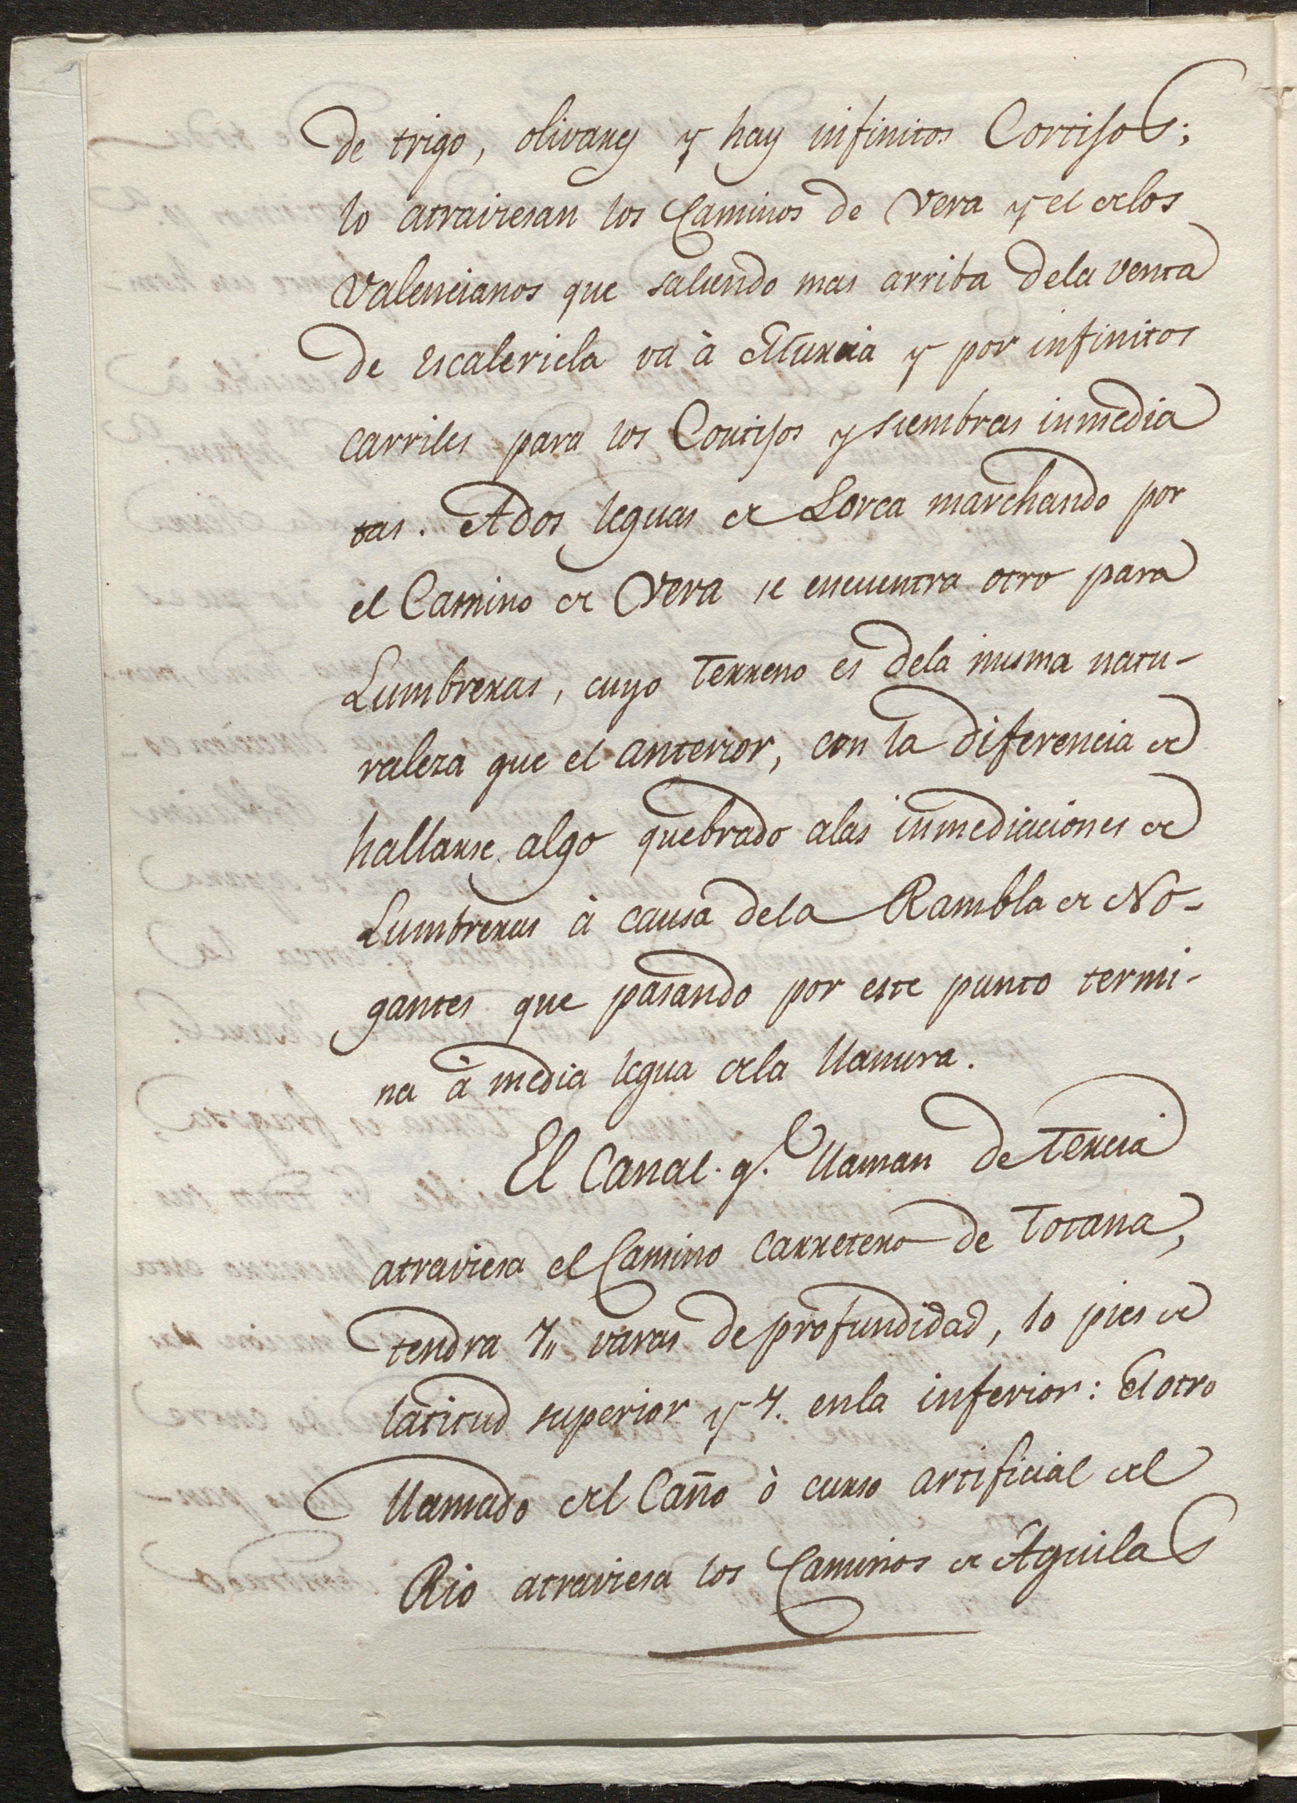 de trigo, olivares y hay infinitos Cortisos;
lo atraviesan los Caminos de Vera y el de los
Valencianos que saliendo mas arriba dela venta
de Escaleriela va à Murcia y por infinitos
carriles para los Cortijos y siembras inmedia
tas. A dos leguas de Lorca marchando por
el Camino de Vera se encuentra otro para
Lumbreras, cuyo Terreno es dela misma natu-
raleza que el anterior, con la diferencia de
hallarse algo quebrado alas inmediaciones de
Lumbreras à causa dela Rambla de No-
gantes que pasando por este punto termi-
na à media legua dela llanura.
El Canal q.e llaman de Tercia
atraviesa el Camino carretero de Totana,
tendra 7,, varas de profundidad, 10 pies de
latitud superior y 7. enla inferior: El otro
llamado del Caño ò curso artificial del
Rio atraviesa los Caminos de Aguilas